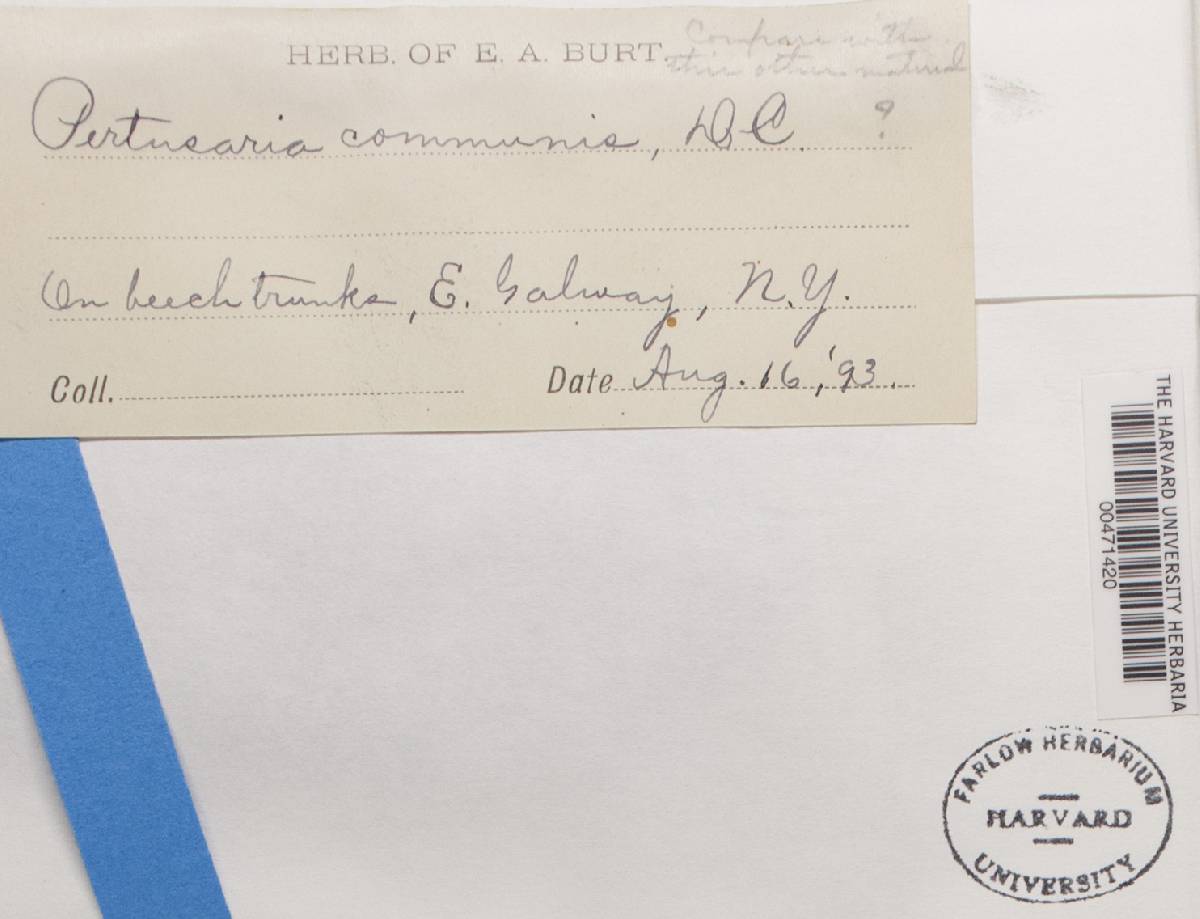 HERB. OF E. A. BURT.
Compare with
this other material
Pertusaria communis, DC. ?
On beech trunks, E. Galway, N.Y.
Coll. Date Aug. 16, '93.
THE HARVARD UNIVERSITY HERBARIA
00471420
FARLOW HERBARIUM
HARVARD
UNIVERSITY